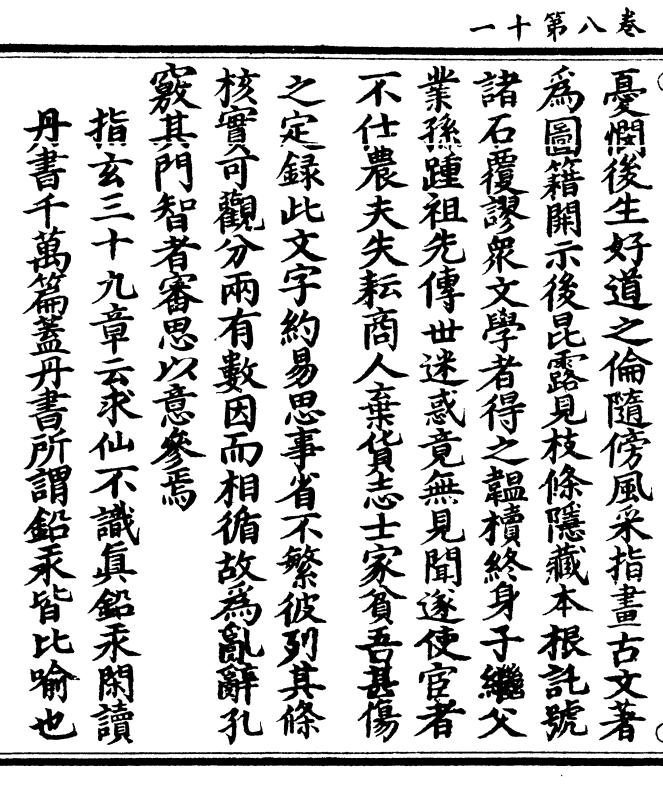 卷八第十一
憂憫後生好道之倫隨傍風采指畫古文著
為圖籍開示後昆露見枝條隱藏本根託號
諸石覆謬衆文學者得之韞櫝終身子繼父
業孫踵祖先傳世迷惑竟無見聞遂使宦者
不仕農夫失耘商人棄貨志士家貧吾甚傷
之定録此文字約易思事省不繁彼列其條
核實可觀分兩有數因而相循故為亂辭孔
竅其門智者審思以意參焉
指玄三十九章云求仙不識真鉛汞閑讀
丹書千萬篇蓋丹書所謂鉛汞皆比喻也